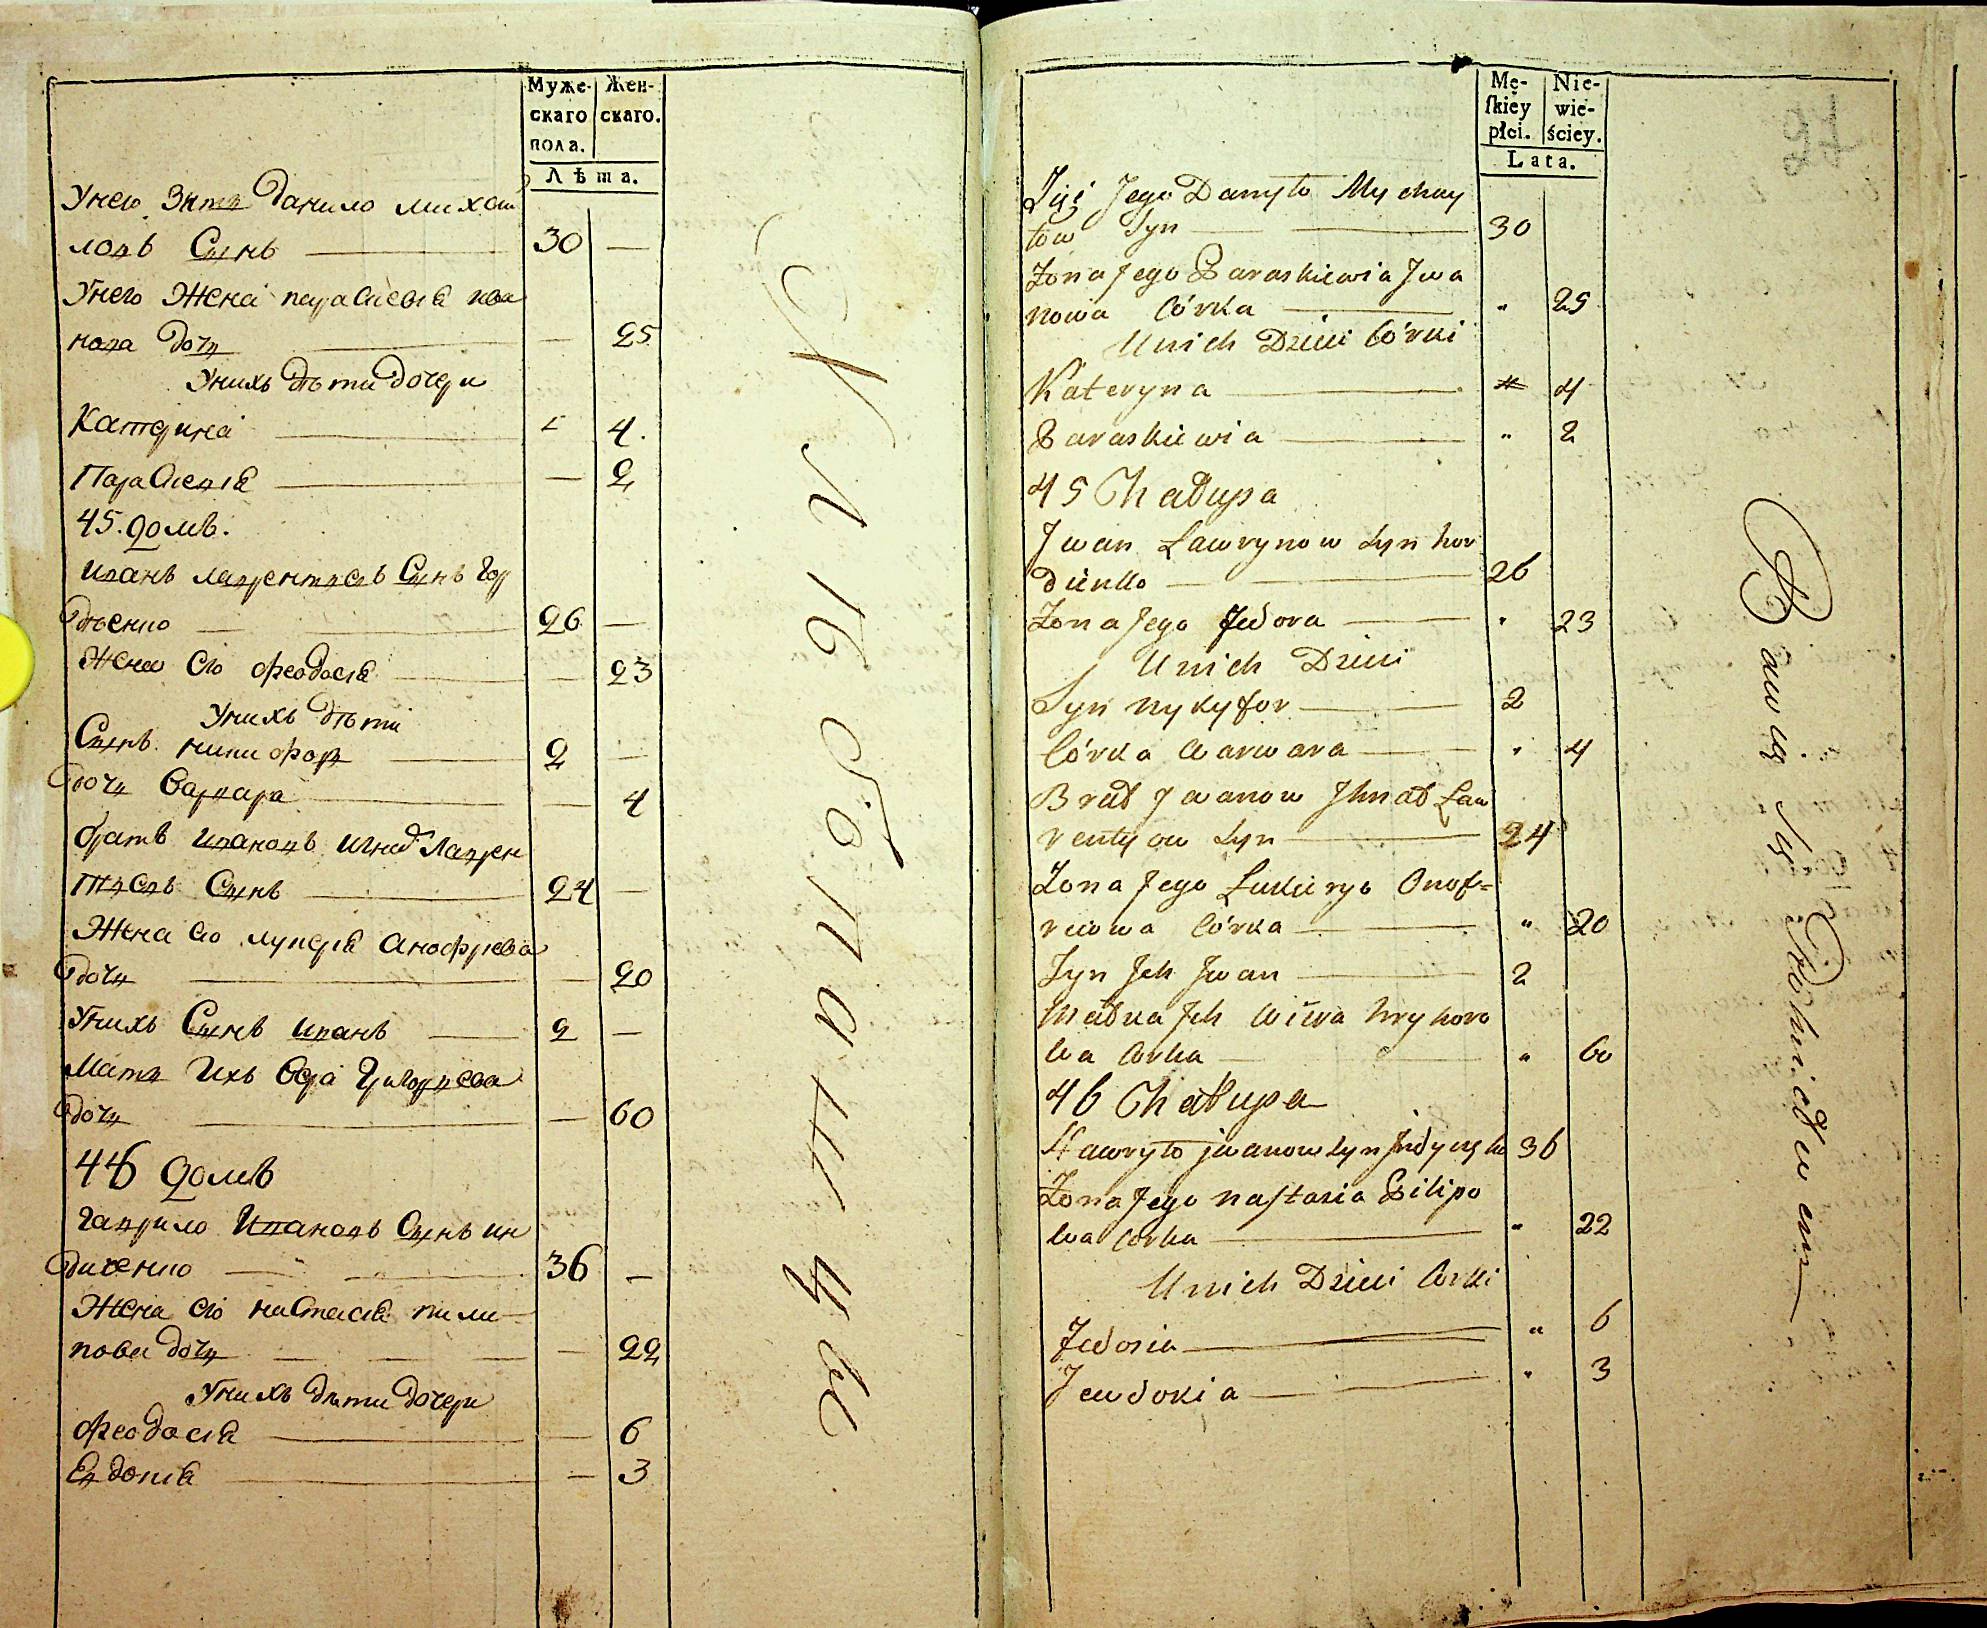 Муже-
скаго
пола.
Жен-
скаго.
Лѣта.
Унего Зять Данило михаи
ловъ Сынъ 30 —
Унего Жена парасковія ива
нова дочь — 25
Унихъ дѣти дочери
Катерина 4.
Парасковія — 2
45. домъ.
Иванъ лаврентіевъ Сынъ Гор
дѣенко 26 —
Жена его феодосія — 23
Унихъ дѣти
Сынъ никифоръ 2 —
дочь варвара — 4
братъ Ивановъ игнад лаврен
тіевъ Сынъ 24 —
Жена его лукерія анофріева
дочь — 20
Унихъ Сынъ иванъ 2 —
Мать Ихъ вера Григоріева
дочь — 60
46 домъ
гаврило Ивановъ Сынъ ин
диченко 36 —
Жена его настасія пили
пова дочь — 22
Унихъ дѣти дочери
феодосія — 6
Евдокія — 3
Mę-
skiey
płci.
Nie-
wie-
ściey.
Lata.
Jego Danyło Mychay
łow Syn 30
Zona Jego Paraskiewia Jwa
nowa Córka " 25
Unich Dzieci Córki
Kateryna 4
Paraskiewia " 2
45 Chałupa
Jwan Ławrynow Syn hor
dienko 26
Zona Jego Fedora " 23
Unich Dzieci
Syn nykyfor 2
Córka warwara " 4
Brat Jwanow Jhnat Law
rentyow Syn 24
Zona Jego Łukierya Onof=
reiowa Córka " 20
Syn Jch Jwan 2
Matka Jch Wiera hryhoro
wa Corka " 60
46 Chałupa
Hawryło jwanow Syn 36
Zona Jego nastasia Pilipo
wa Corka " 22
Unich Dzieci Corki
Fedosia " 6
Jewdokia " 3